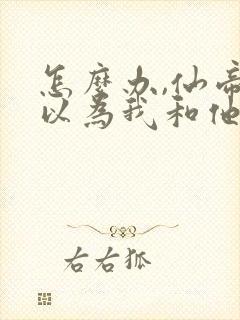 怎麼办,仙帝
以為我和他
右右狐